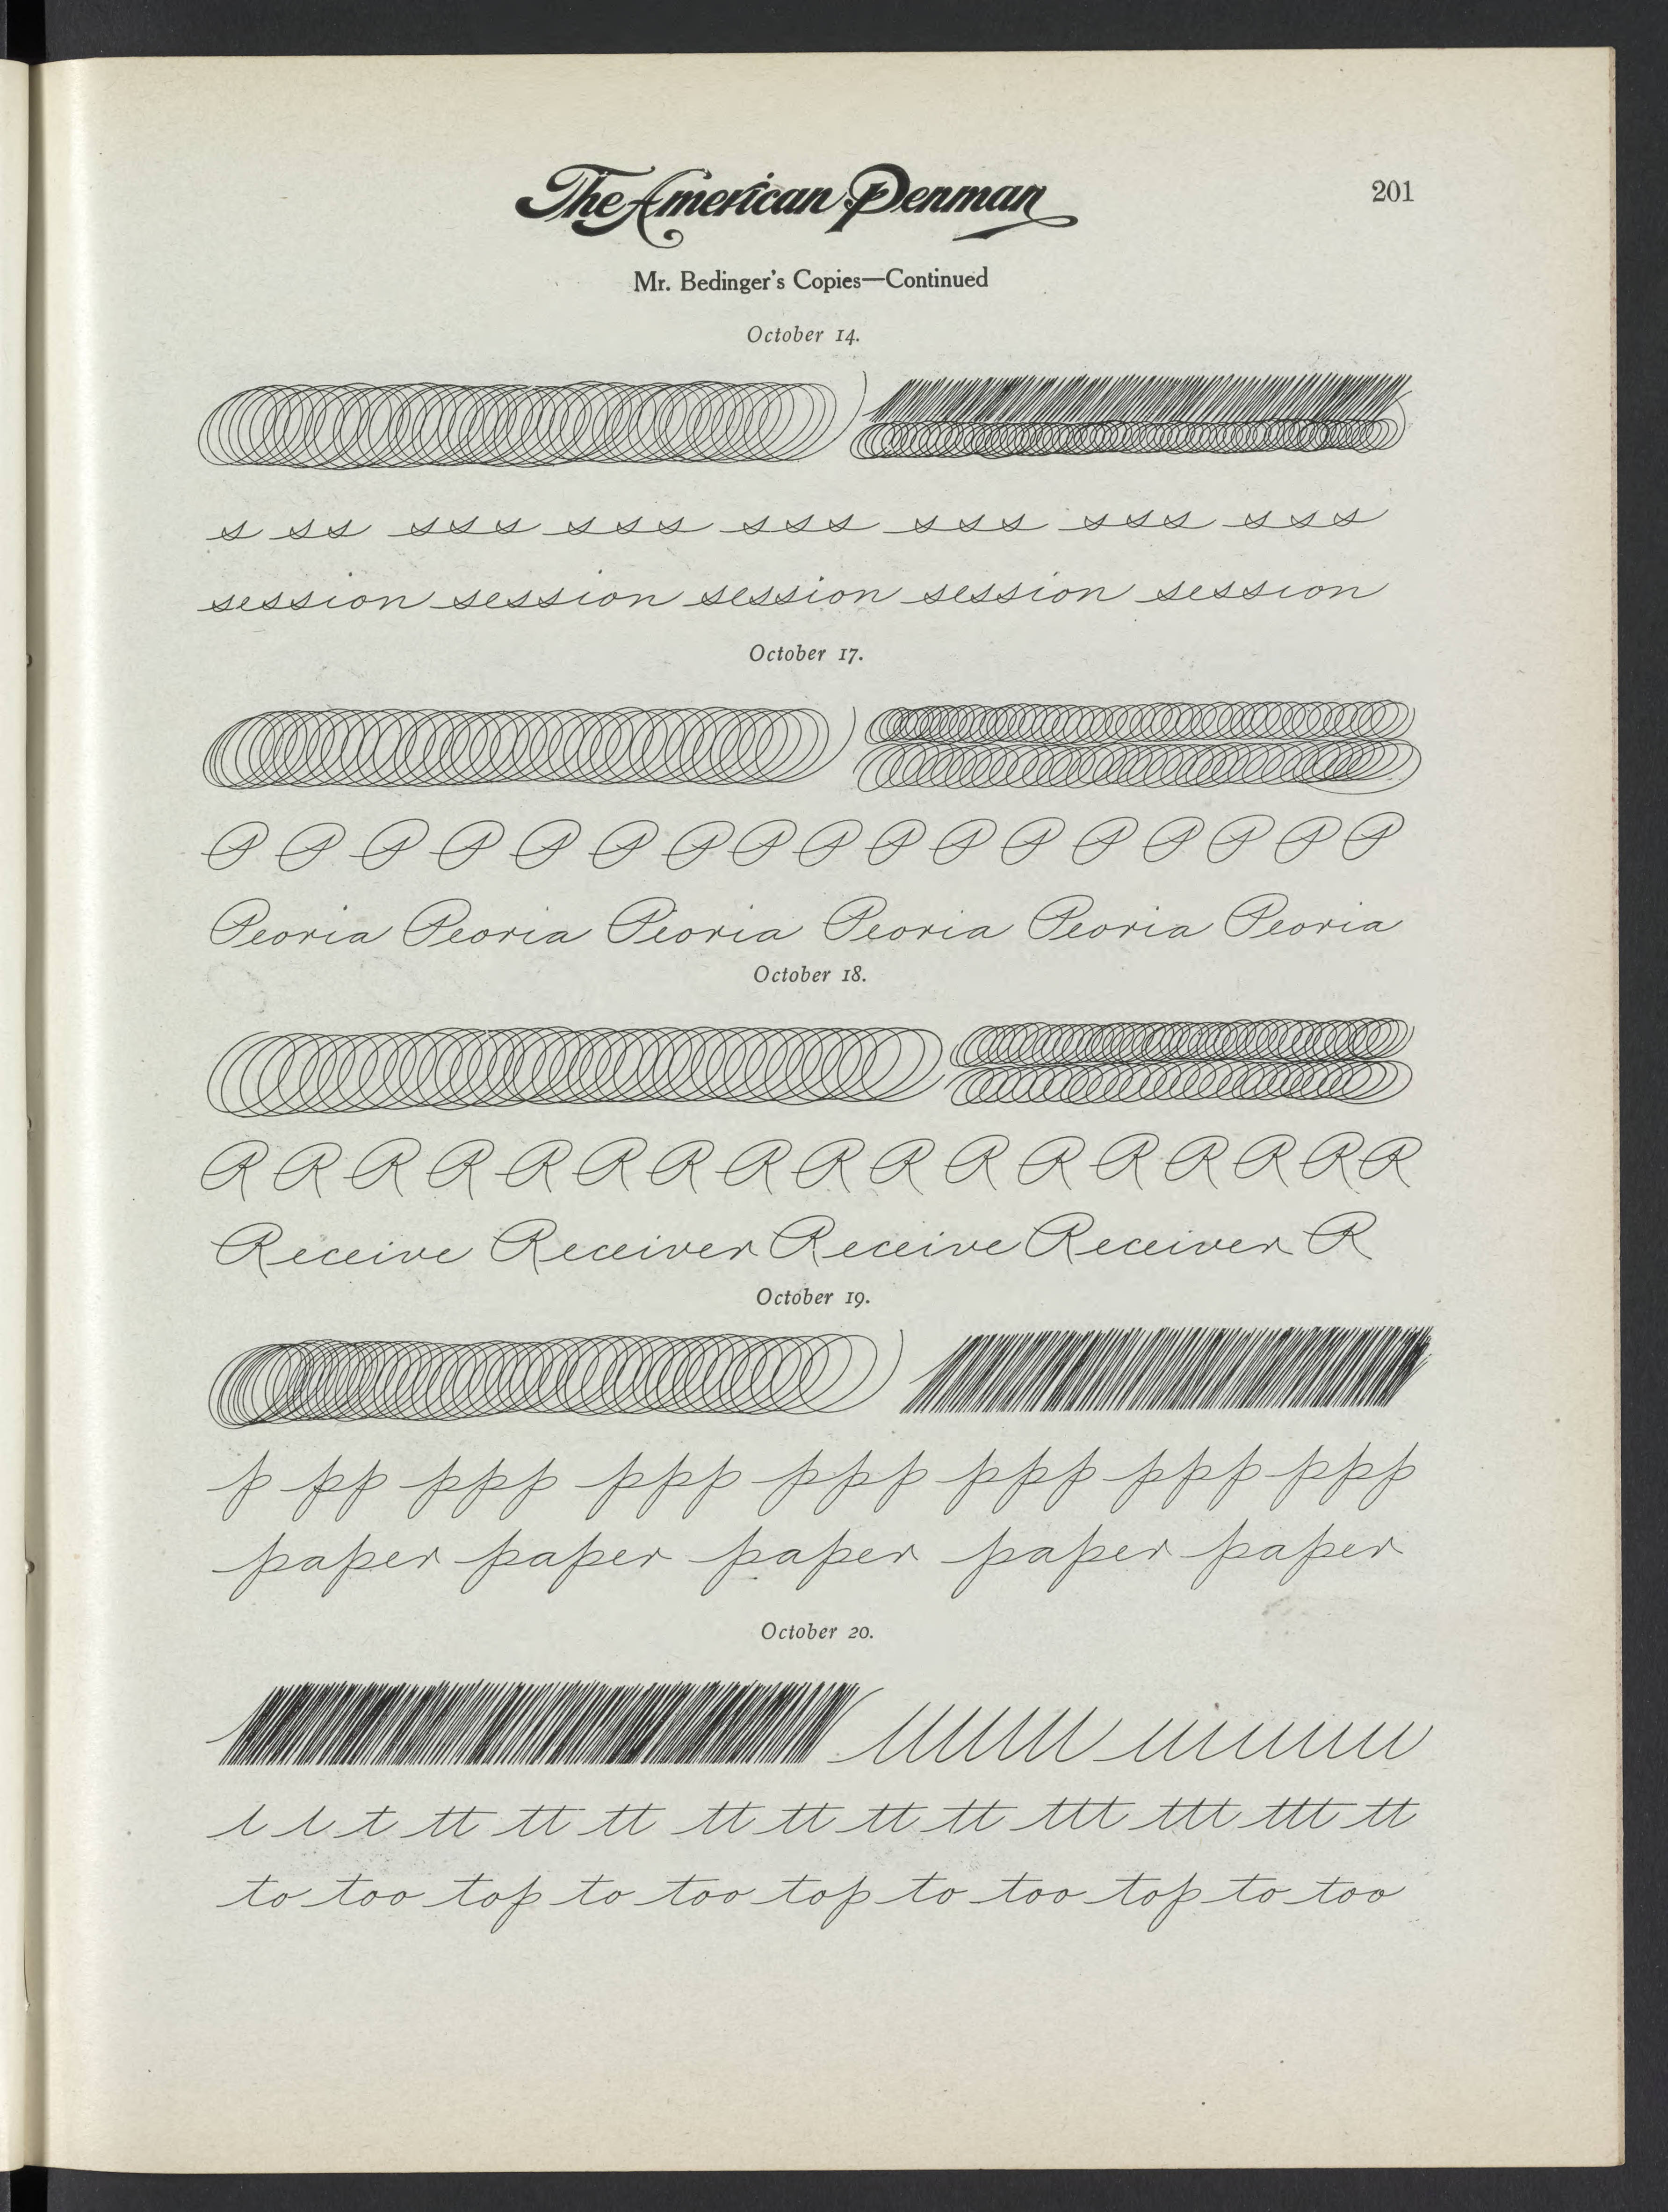 The American Penman
201
Mr. Bedinger's Copies—Continued
October 14.
s ss sss sss sss sss sss sss
session session session session session
October 17.
P P P P P P P P P P P P P P P P P
Peoria Peoria Peoria Peoria Peoria Peoria
October 18.
R R R R R R R R R R R R R R R R R
Receive Receiver Receive Receiver R
October 19.
p pp ppp ppp ppp ppp ppp ppp
paper paper paper paper paper
October 20.
t t t tt tt tt tt tt tt tt ttt ttt ttt tt
to too top to too top to too top to too